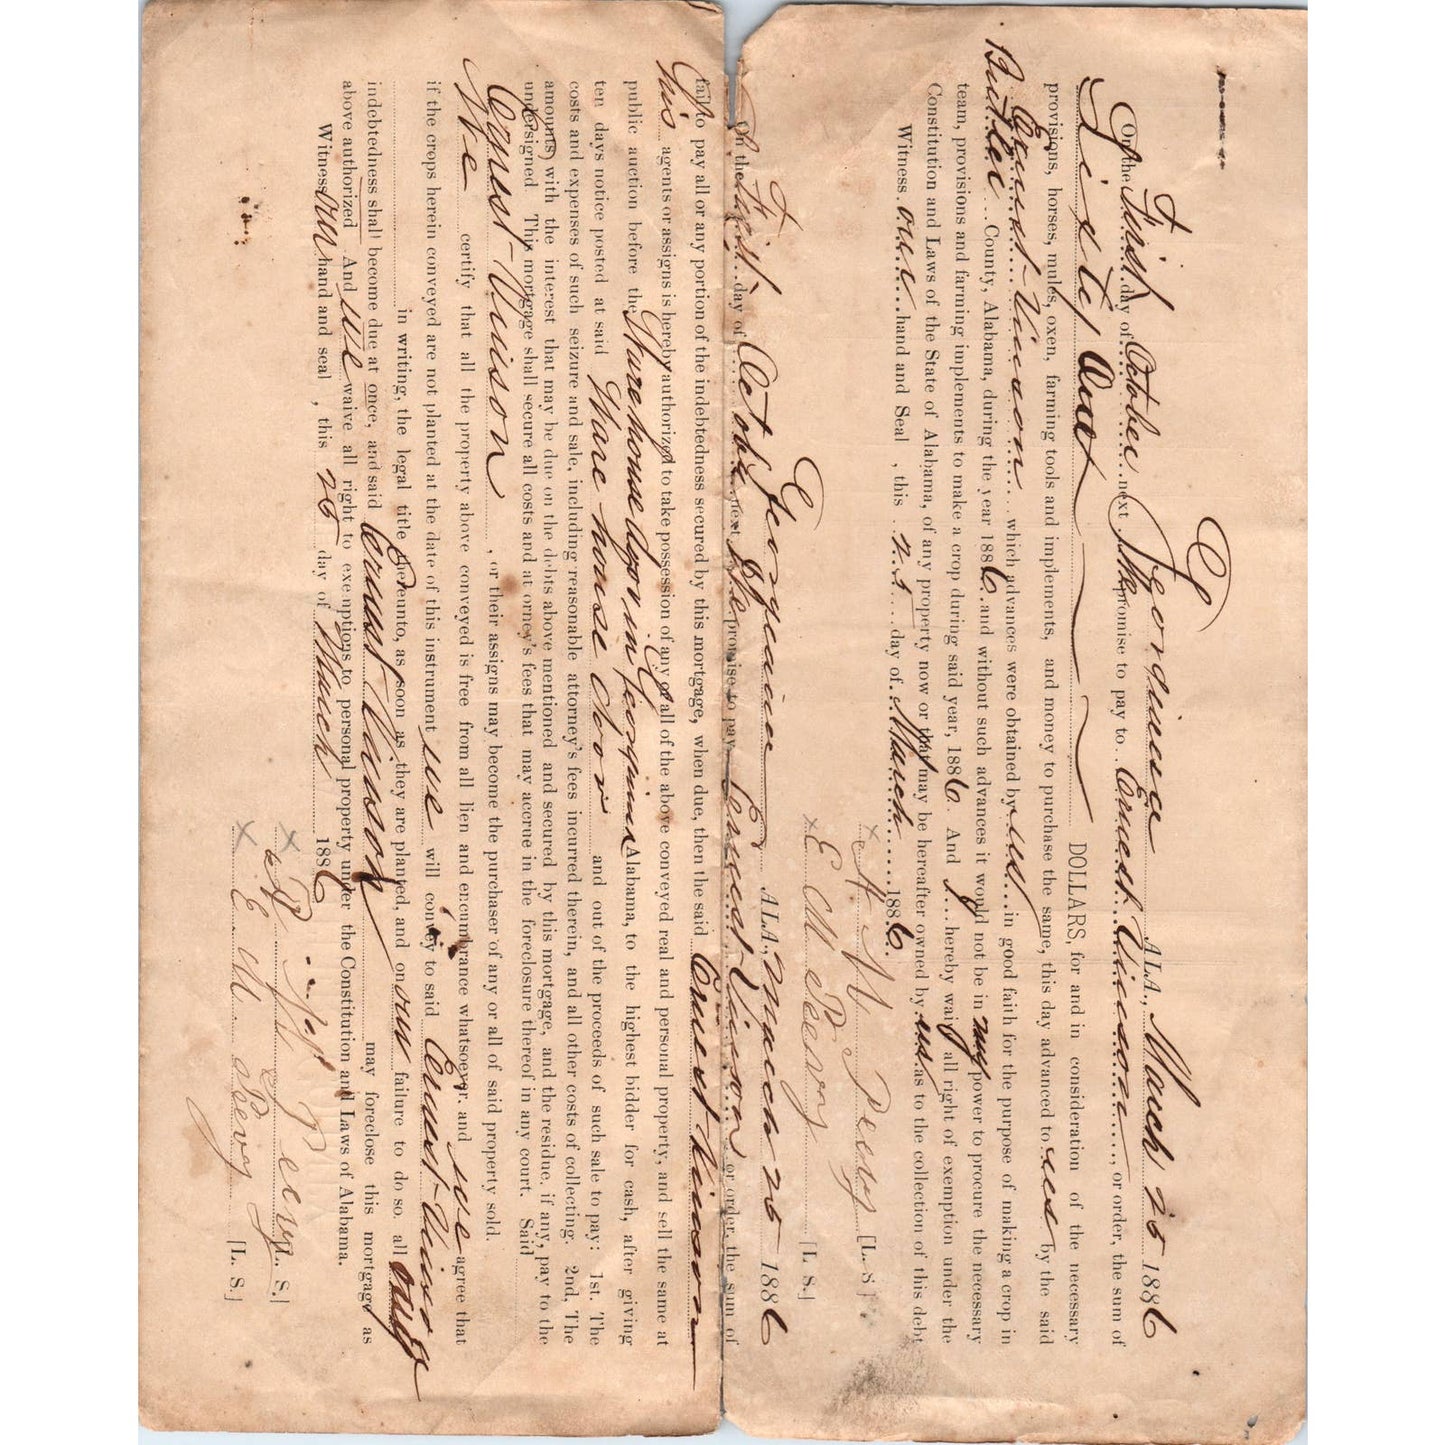 Georgiana ALA., March 25 1886
On the First day of October next I promise to pay to Ernest Vinson, or order, the sum of
Sixty One DOLLARS, for and in consideration of the necessary
provisions, horses, mules, oxen, farming tools and implements, and money to purchase the same, this day advanced to us by the said
Ernest Vinson which advances were obtained by us in good faith for the purpose of making a crop in
Butler County, Alabama, during the year 1886 and without such advances it would not be in my power to procure the necessary
team, provisions and farming implements to make a crop during said year, 1886. And I hereby waive all right of exemption under the
Constitution and Laws of the State of Alabama, of any property now or may be hereafter owned by us as to the collection of this debt
Witness our hand and Seal , this 25 day of March 1886.
W Peevy [L. S.]
E M Peevy [L. S.]
Georgiana ALA., March 25 1886
On the First day of October next promise to pay Ernest Vinson or order, the sum of
fail to pay all or any portion of the indebtedness secured by this mortgage, when due, then the said Ernest Vinson
his agents or assigns is hereby authorized to take possession of any or all of the above conveyed real and personal property, and sell the same at
public auction before the Warehouse door in Georgiana Alabama, to the highest bidder for cash, after giving
ten days notice posted at said Ware house door and out of the proceeds of such sale to pay: 1st. The
costs and expenses of such seizure and sale, including reasonable attorney's fees incurred therein, and all other costs of collecting. 2nd, The
amount(s) with the interest that may be due on the debts above mentioned and secured by this mortgage, and the residue, if any, pay to the
undersigned This mortgage shall secure all costs and attorney's fees that may accrue in the foreclosure thereof in any court. Said
Ernest Vinson , or their assigns may become the purchaser of any or all of said property sold.
We certify that all the property above conveyed is free from all lien and encumbrance whatsoever. and we agree that
if the crops herein conveyed are not planted at the date of this instrument we will convey to said Ernest Vinson
in writing, the legal title hereunto, as soon as they are planted, and on our failure to do so. all
indebtedness shall become due at once, and said Ernest Vinson may foreclose this mortgage as
above authorized And we waive all right to exemptions to personal property under the Constitution and Laws of Alabama.
Witness our hand and seal , this 25 day of March 1886
Peevy S.]
E M Peevy [L. S.]